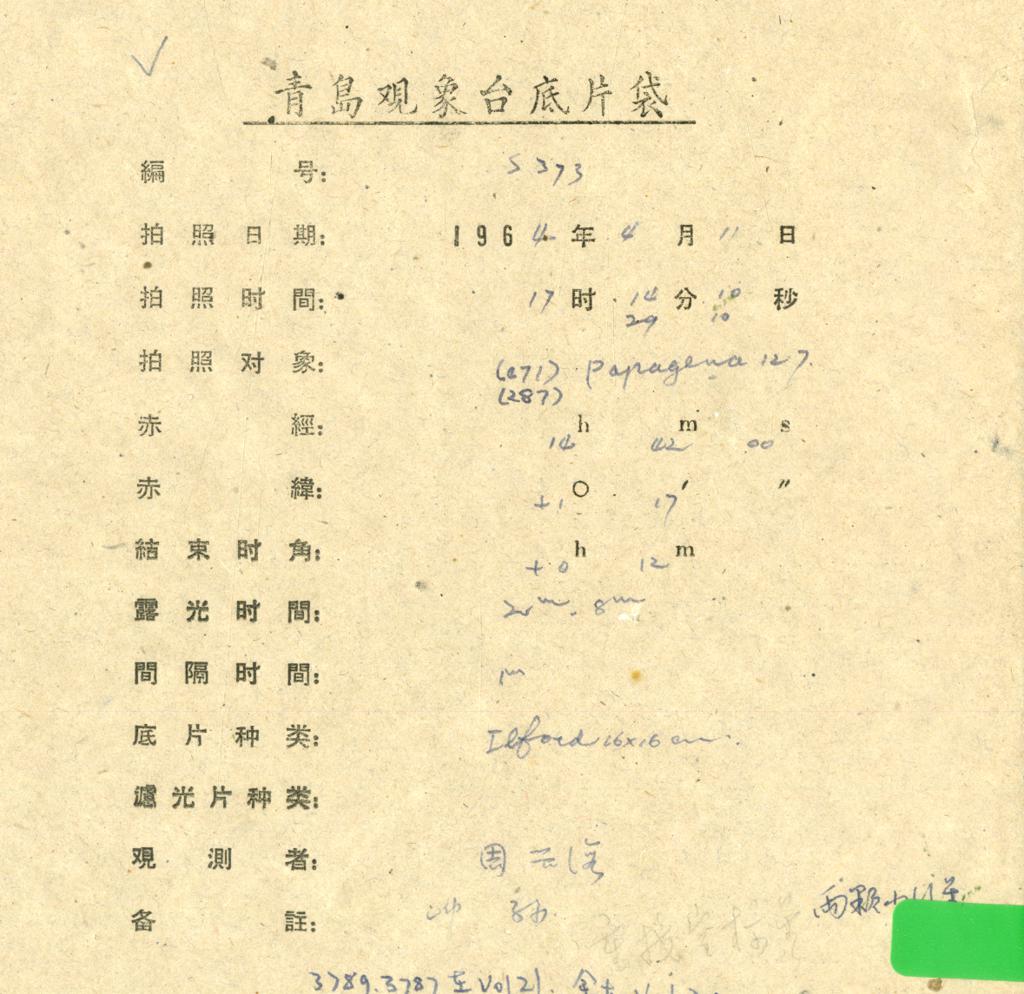 青島观象台底片袋
編号: S 373
拍照日期: 1964年4月11日
拍照时間: 17时14分10秒
29 10
拍照对象: (471) Papagena 127.
(287)
赤經: 14h 42m 00s
赤緯: +1° 17′ ″
結束时角: +0h 12m
露光时間: 8m
間隔时間: 1m
底片种类: Ilford 16x16 cm.
濾光片种类:
观測者: 周
备註:
两颗小行星
3789.3787 在 Vol21.